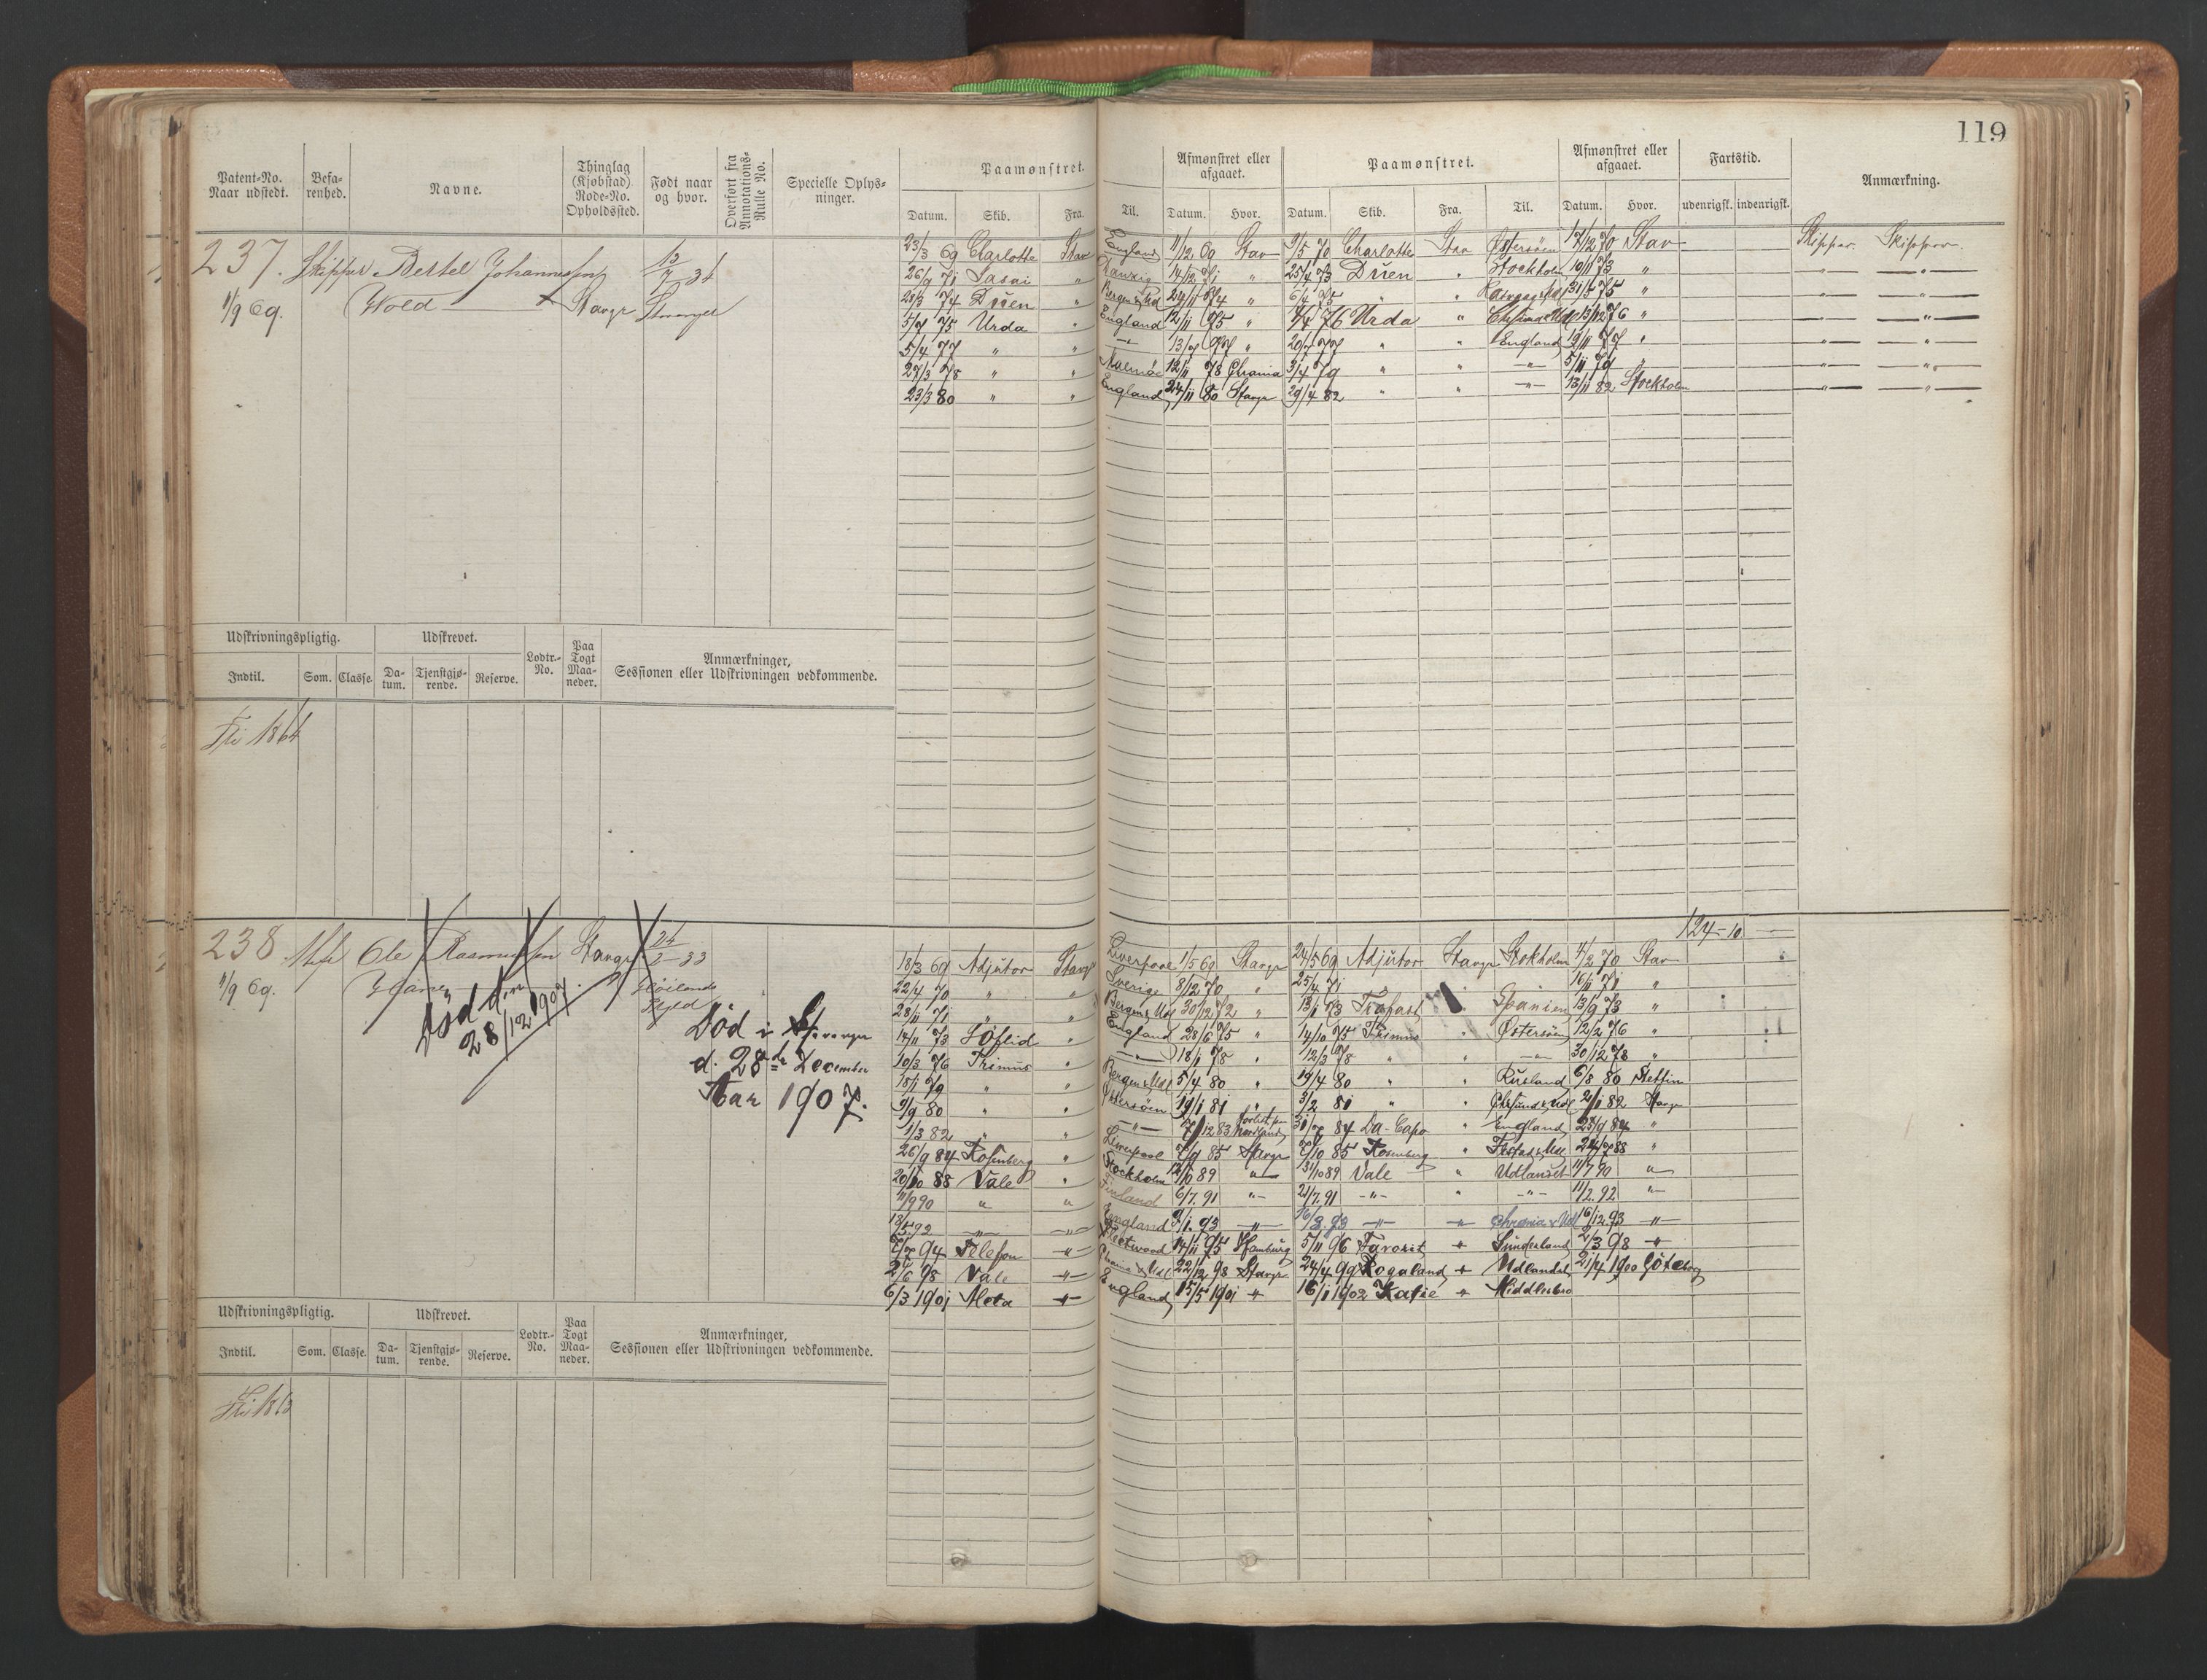 119
Patent-No. Naar udstedt. Befa-renhed. Navne. Thinglag (Kjøbstad) Rode-No. Opholdssted. Født naar og hvor. Overført fra Annotations-Rulle No. Specielle Oplys-ninger. Paamønstret. Afmønstret eller afgaaet. Paamønstret. Afmønstret eller afgaaet. Fartstid. Anmærkning.
Datum. Skib. Fra. Til. Datum. Hvor. Datum. Skib. Fra. Til. Datum. Hvor. udenrigsk. indenrigsk.
237. Skipper Bertel Johannessen 23/3 69 Charlotte Stav England 11/12 69 Stav 9/5 70 Charlotte Stav Østersøen 17/12 70 Stav Skipper. Skipper.
26/9 71 14/12 71 " 25/4 73 Duen " Stockholm 10/11 73 " — " — — " —
1/9 69. Wold Stavgr 28/3 74 Duen " 24/11 74 " 6/4 75 " " 31/5 75 " — " — — " —
5/7 75 Urda " England 12/11 75 " 76 Urda " 13/12 76 " — " — — " —
5/4 77 " " — " — 13/7 77 " 20/7 77 " " England 19/11 77 " — " — — " —
27/3 78 " " Malmö 12/11 78 Chania 3/4 79 " " — " — 5/11 79 " — " — — " —
23/3 80 " " England 24/11 80 Stavgr 29/4 82 " " — " — 13/11 82 Stockholm — " — — " —
Udskrivningspligtig. Udskrevet. Lodtr.-No. Paa Togt Maa-neder. Anmærkninger, Sessionen eller Udskrivningen vedkommende.
Indtil. Som. Classe. Da-tum. Tjenstgjø-rende. Reserve.
Fri 1864
124-10 —
238 Ole Rasmussen Stavgr 24/2-33 18/3 69 Adjutor Stavgr Liverpool 1/5 69 Stavgr 24/5 69 Adjutor Stavgr Stokholm 70 Stav
1/9 69. 22/4 70 " " Sverige 8/2 70 " 25/4 71 " 16/11 71 "
Død d. 28/12 1907 28/11 71 " " Bergen & Udl 30/12 72 " 13/1 73 Trofast " Spanien 13/9 73 "
Død i Stavanger 14/11 73 " England 28/6 75 " 14/10 75 Primus " Østersøen 12/2 76 "
d. 28de December 10/3 76 Primus " — " — 18/1 78 " 12/3 78 " " — " — 30/12 78 "
Aar 1907. 18/1 79 " " Bergen & Udl 5/4 80 " 19/4 80 " " Rusland 6/8 80 Stettin
9/9 80 " " Østersøen 19/1 81 " 3/2 81 " " Chrsund & Udl 21/1 82 Stavgr
1/3 82 " " — " — 7/12 83 Forlist paa Nordland 31/7 84 Da-Capo " England 23/9 84 "
26/9 84 Rosenberg " Liverpool 7/9 85 Stavgr 7/10 85 Rosenberg " 24/7 88 "
20/10 88 Vale " Stockholm 89 " 31/10 89 Vale " Udlandet 11/7 90 "
11/9 90 " " Finland 6/7. 91 " 21/7. 91 - " - " - " - 11/2. 92 "
92 — " — — " — England 9/1. 93 — " — 16/3. 93 — " — " Chrania & Udl 16/12. 93 — " —
7/7 94 Telefon — " — Fleetwood 14/11 95 Hamburg 5/11 96 Favorit " Sunderland 2/3 98 "
2/6 98 Vale — " — Chania & Udl 22/12 98 Stavgr 24/4 99 Rogaland " Udlandet 21/4 1900 Göteborg
6/3 1901 Meta — " — England 15/5 1901 " 16/1 1902 Katie " Middlesbro
Udskrivningspligtig. Udskrevet. Lodtr.-No. Paa Togt Maa-neder. Anmærkninger, Sessionen eller Udskrivningen vedkommende.
Indtil. Som. Classe. Da-tum. Tjenstgjø-rende. Reserve.
Fri 1863